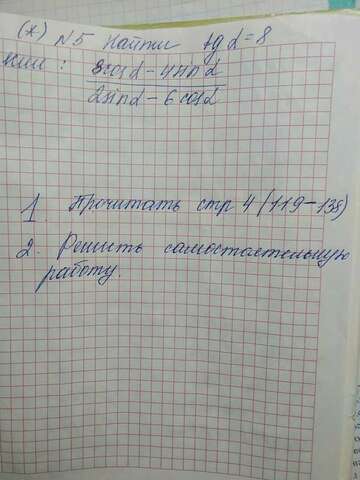 (*) N5 Найти tg α = 8
если : 3cosα - 4sinα
2sinα - 6cosα
1. Прочитать стр 4 (119-138)
2. Решить самостоятельную
работу.